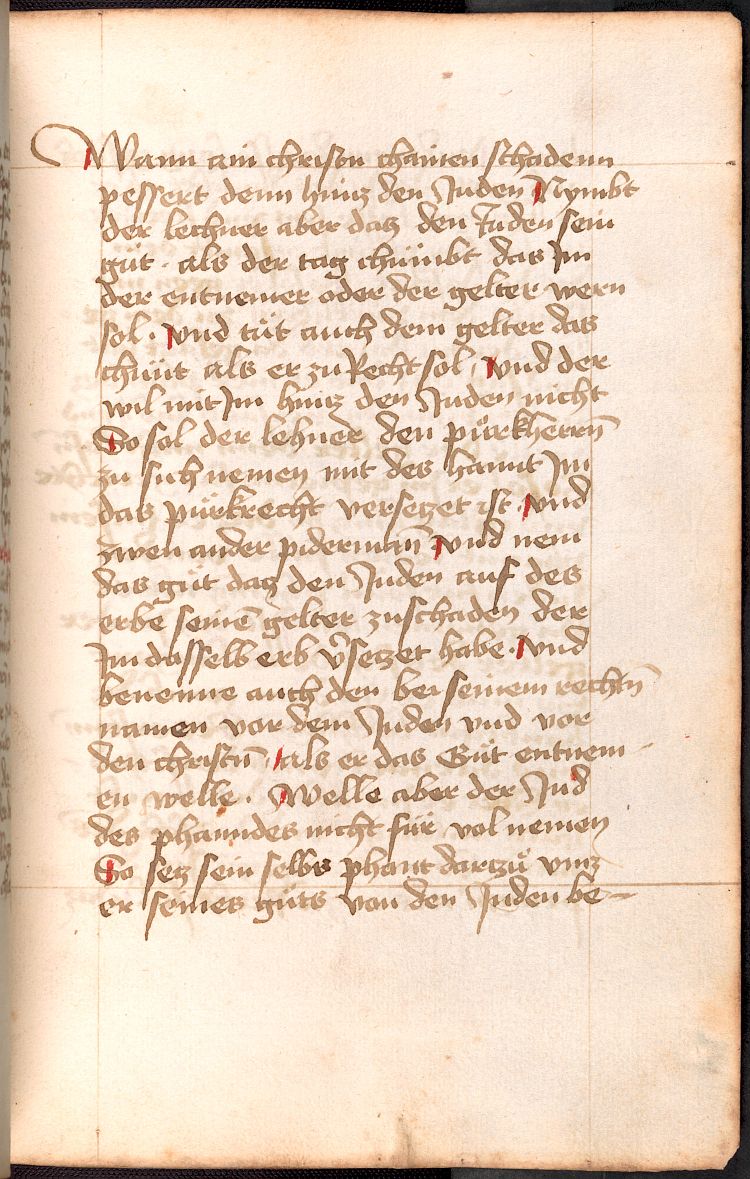 Wann ain christen chainen schadenn
pessert denn hinz den Juden Nymbt
der lechner aber daz den Juden sein
güt · als der tag chümbt das Im
der entnemer oder der gelter wern
sol · vnd tüt auch dem gelter das
chunt als er zu Recht sol / vnd der
wil mit Im hinz den Juden nicht
So sol der lehner den pürkherrn̄
zu sich nemen mit des hannt Im
das pürkrecht versetzet ist · vnd
zwen ander piderman̄ vnd nem
das güt daz den Juden auf des
erbe seinē gelter zuschaden der
Im dasselb erb v̓setzet habe · vnd
benenne auch den bei seinem rechtn̄
namen vor dem Juden vnd vor
den christn̄ / als er das Güt entnem
en welle · Welle aber der Jud
des phanndes nicht für vol nemen
So setz sein selbs phant dartzü vntz
er seines güts von den Juden be-